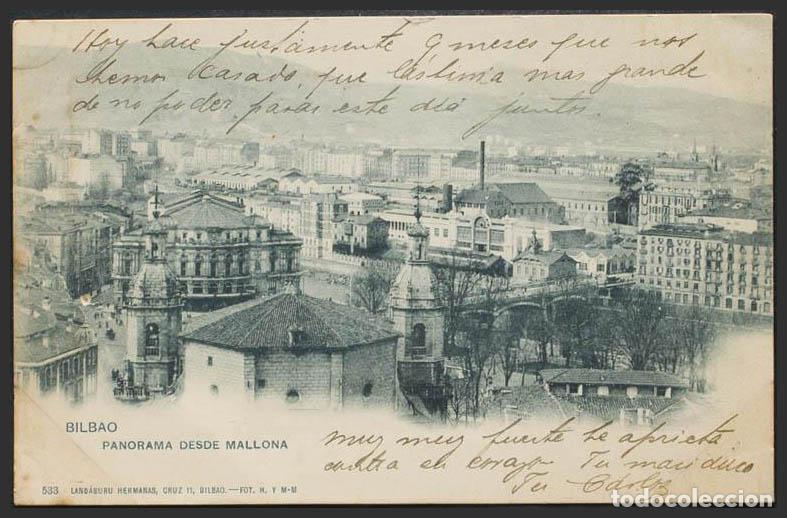 Hoy hace justamente 9 meses que nos
hemos casado, que lástima mas grande
de no poder pasar este dia juntos.
BILBAO
PANORAMA DESDE MALLONA
muy muy fuerte te aprieta
contra su corazon Tu maridico
Tu Carlos
533 LANDÁBURU HERMANAS, CRUZ 11, BILBAO.—FOT. H. Y M-M
todocoleccion